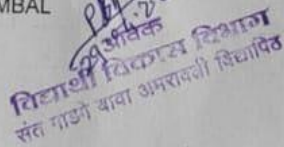 MBAL
आवेक
विद्यार्थी विकास विभाग
संत गाडगे बाबा अमरावती विद्यापिठ